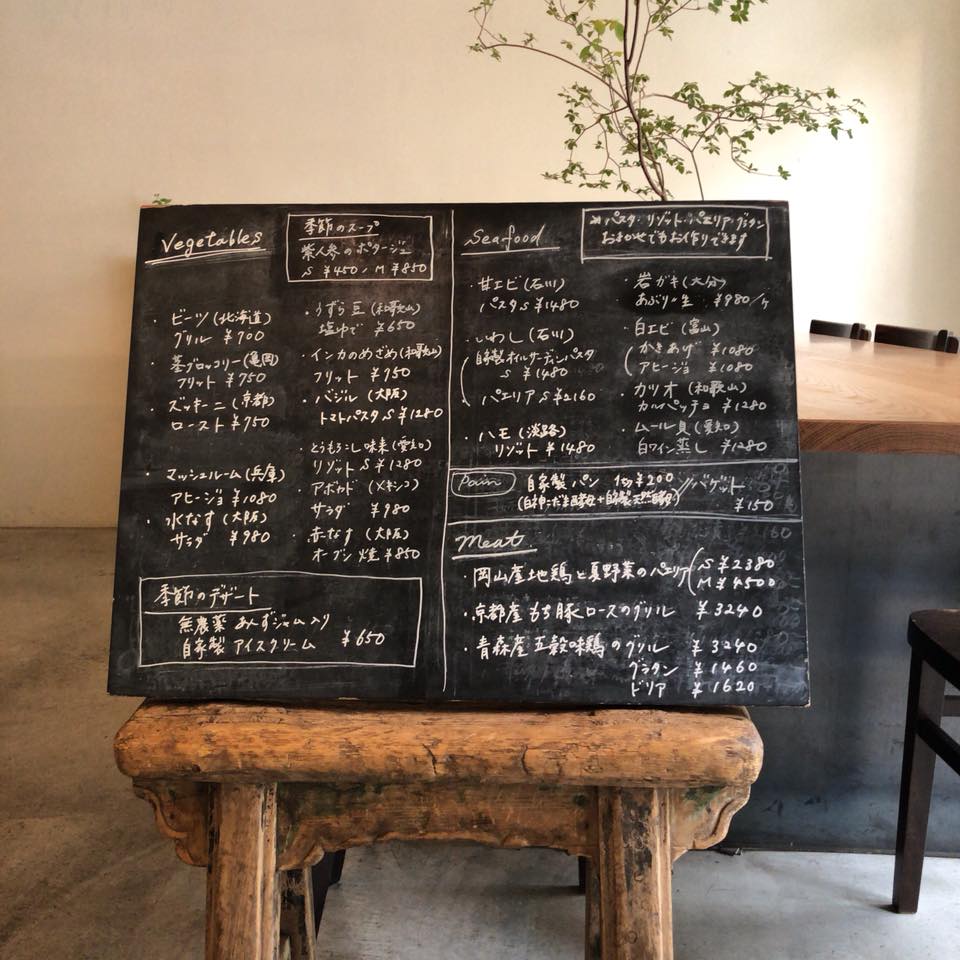 Vegetables
季節のスープ
紫人参のポタージュ
S ¥450 / M ¥850
・ビーツ(北海道)
グリル ¥700
・茎ブロッコリー(亀岡)
フリット ¥750
・ズッキーニ(京都)
ロースト ¥750
・マッシュルーム(兵庫)
アヒージョ ¥1080
・水なす(大阪)
サラダ ¥980
・うずら豆(和歌山)
塩ゆで ¥650
・インカのめざめ(和歌山)
フリット ¥750
・バジル(大阪)
トマトパスタS ¥1280
・とうもろこし味来(愛知)
リゾットS ¥1280
・アボカド(メキシコ)
サラダ ¥980
・赤なす(大阪)
オーブン焼 ¥850
季節のデザート
無農薬あんずジャム入り
自家製アイスクリーム ¥650
Seafood
※パスタ・リゾット・パエリア・グラタン
おまかせでもお作りできます
・甘エビ(石川)
パスタS ¥1480
・いわし(石川)
自家製オイルサーディンパスタ
S ¥1480
パエリアS ¥2160
・ハモ(淡路)
リゾット ¥1480
・岩ガキ(大分)
あぶり or 生 ¥980/ケ
・白エビ(富山)
かきあげ ¥1080
アヒージョ ¥1080
・カツオ(和歌山)
カルパッチョ ¥1280
・ムール貝(愛知)
白ワイン蒸し ¥1280
Pain 自家製パン 1切¥200
(白神こだま酵母+自家製天然酵母)
バゲット
¥150
Meat
・岡山産地鶏と夏野菜のパエリア S ¥2380
M ¥4500
・京都産もち豚ロースのグリル ¥3240
・青森産五穀味鶏のグリル ¥3240
グラタン ¥1460
ドリア ¥1620